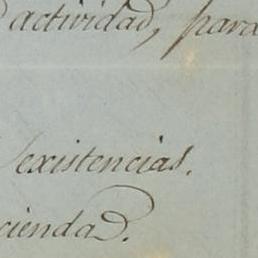 actividad, para
existencias.
cienda.